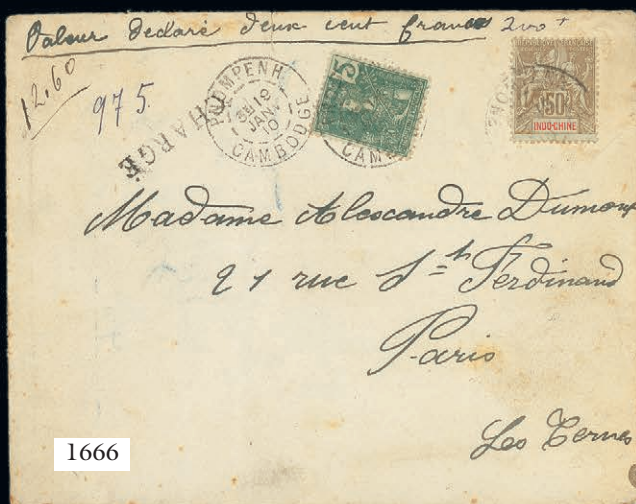 Valeur declaré deux cent francs 200 +
12.60
975.
CHARGÉ
PNOMPENH
19
JANV
10
CAMBODGE
5
CAM
50
INDO-CHINE
Madame Alexandre Dumont
21 rue St Ferdinand
Paris
Les Ternes
1666